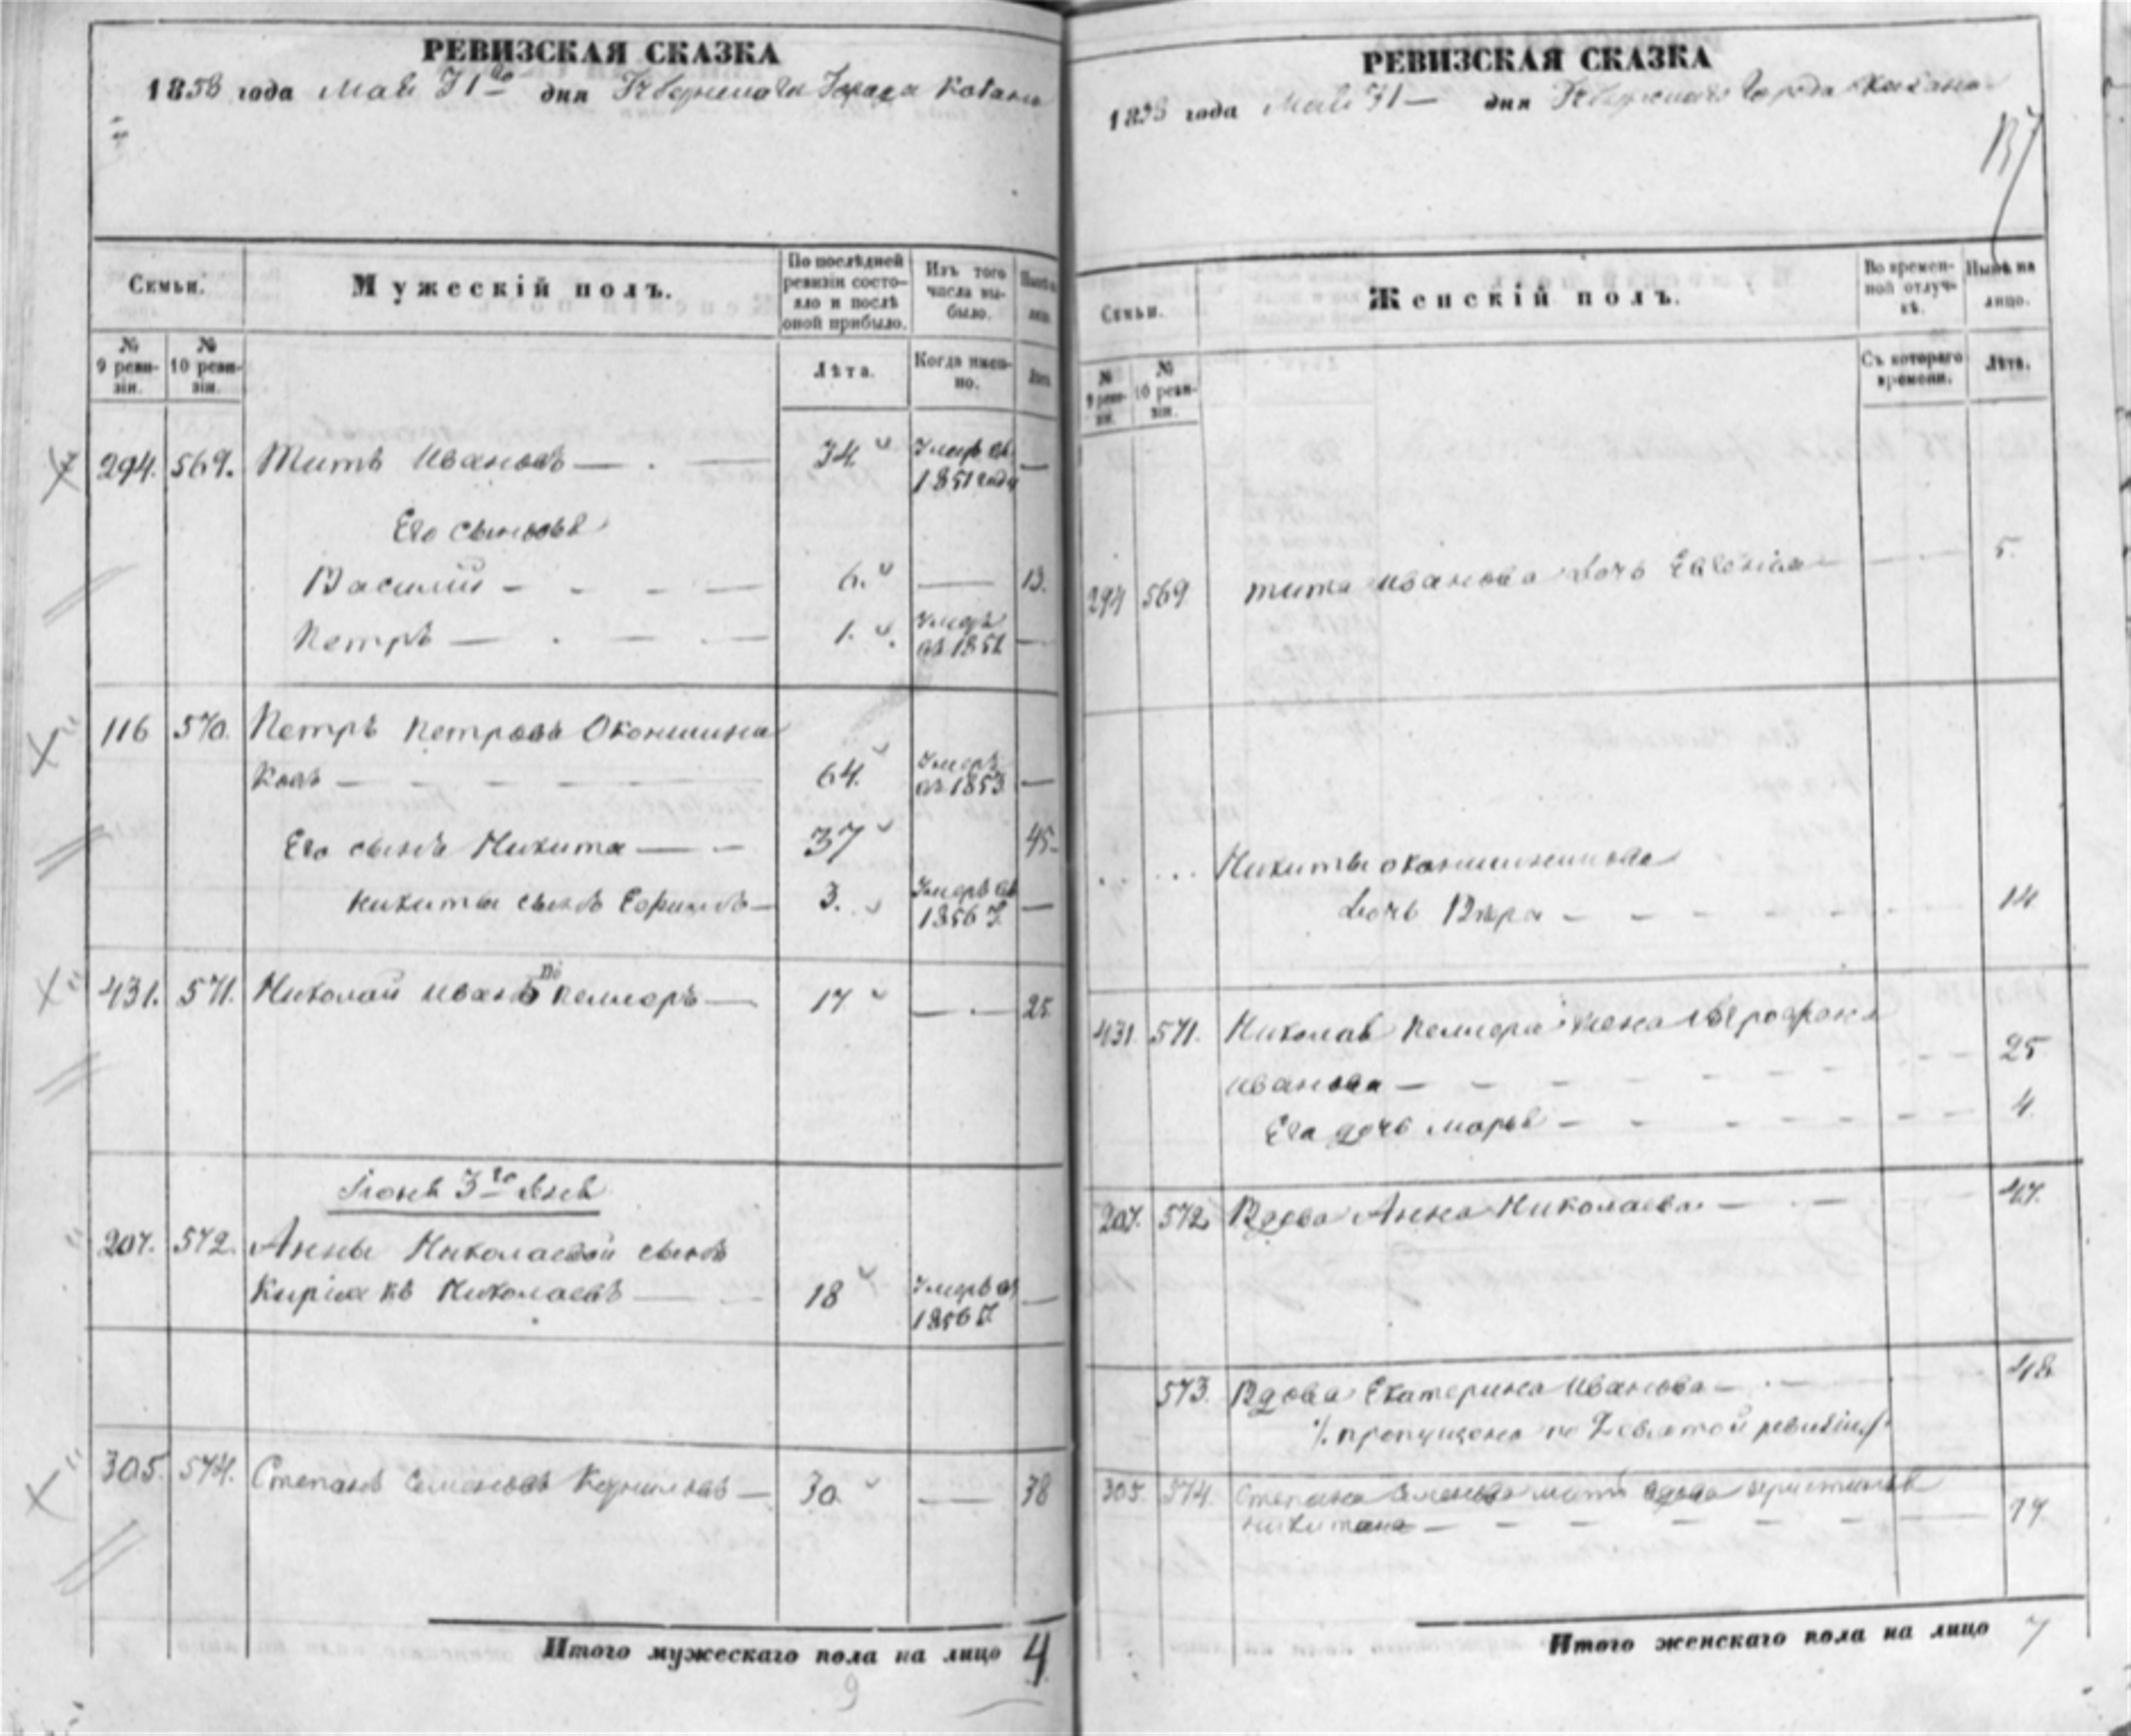 РЕВИЗСКАЯ СКАЗКА
1858 года Мая 31го дня Губернскаго Города Казани
Семьи.
Мужескій полъ.
По послѣдней ревизіи состояло и послѣ оной прибыло.
Изъ того числа выбыло.
№ 9 ревизіи.
№ 10 ревизіи.
Лѣта.
Когда именно.
294. 569. Титъ Ивановъ — 34 Умеръ въ 1851 году —
Его сыновья
Василій — 6. — 13.
Петръ — 1. Умеръ въ 1851 —
116 570. Петръ Петровъ Оконишни
ковъ — 64. Умеръ въ 1853 —
Его сынъ Никита — 37 45.
Никиты сынъ Ефимъ — 3. Умеръ въ 1856 г. —
431. 571. Николай Иванъ Пелмеръ — 17 — 25
Іюня 3го дня
207. 572. Анны Николаевой сынъ
Киріакъ Николаевъ — 18 Умеръ въ 1856 г. —
305. 574. Степанъ Семеновъ — 30 — 38
Итого мужескаго пола на лицо 4
9
РЕВИЗСКАЯ СКАЗКА
1858 года Мая 31 — дня Губернскаго Города Казани
Семьи.
Женскій полъ.
Во временной отлучкѣ.
Нынѣ на лицо.
№ 9 ревизіи.
№ 10 ревизіи.
Съ котораго времени.
Лѣта.
294 569 Тита Иванова дочь — 5.
Никиты Оконишникова
дочь Вѣра — 14
431. 571. Николая Пелмера жена
Иванова — 25
Его дочь Марья — 4
207. 572 Вдова Анна Николаева — 47.
573. Вдова Екатерина Иванова — 48
пропущена по девятой ревизіи
305. 574. Степана Семенова мать вдова
Никитина — 77
Итого женскаго пола на лицо 7